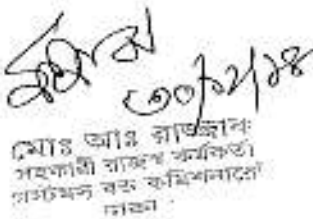 ৩০/১২/১৪
মোঃ আঃ রাজ্জাক
সহকারী রাজস্ব কর্মকর্তা
কাস্টমস বন্ড কমিশনারেট
ঢাকা।